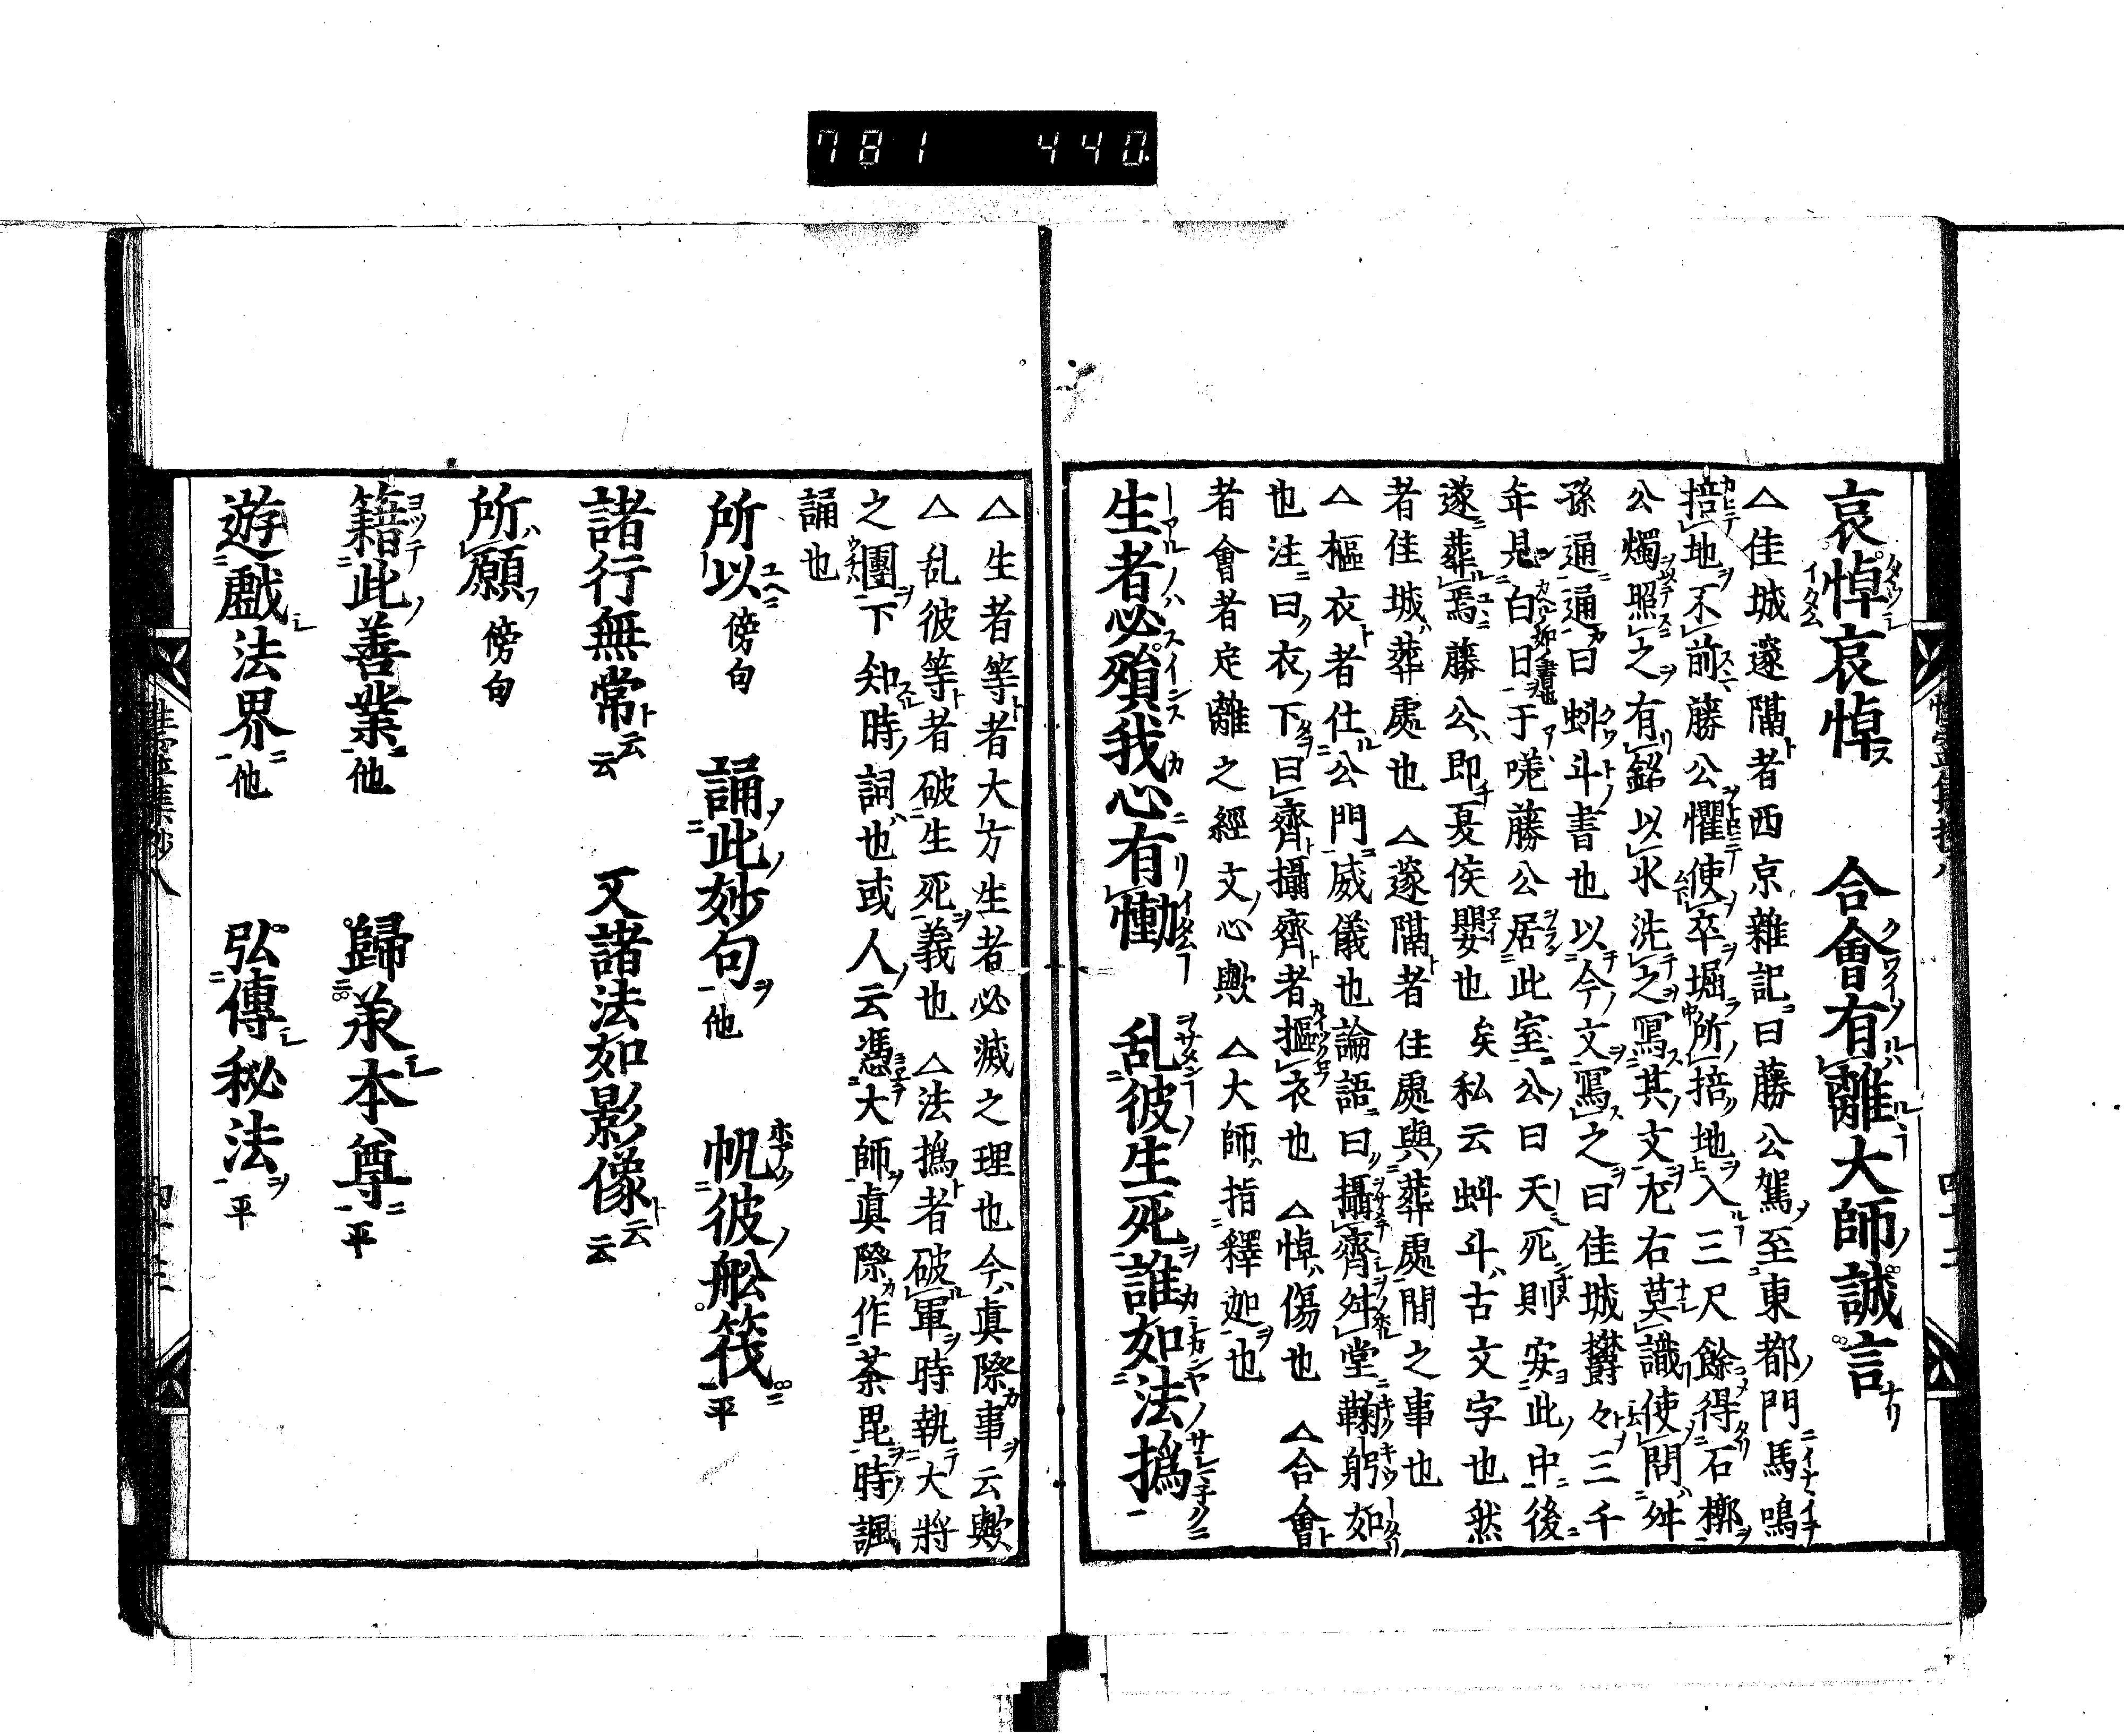 781 440
哀悼哀悼 合會有離大師誠言
△佳城邃隔者西京雜記曰藤公駕至東都門馬鳴
掊地不前藤公懼使卒堀所掊地入三尺餘得石槨
公燭照之有銘以水洗之冩其文尤右莫識使問舛
孫通通曰蚪斗書也以今文冩之曰佳城欝々三千
年見白日于嗟藤公居此室公曰天死則安此中後
遂葬焉藤公即夏侯嬰也矣私云蚪斗古文字也然
者佳城葬處也 △邃隔者住處與葬處間之事也
△樞衣者仕公門威儀也論語曰攝齊舛堂鞠躬如
也注曰衣下曰齊攝齊者摳衣也 △悼傷也 △合會
者會者定離之經文心歟 △大師指釋迦也
生者必殞我心有慟 乱彼生死誰如法撝
△生者等者大方生者必滅之理也今真際事云歟
△乱彼等者破生死義也 △法撝者破軍時執大將
之團下知時詞也或人云憑大師真際作荼毘時諷
誦也
所以傍句 誦此妙句他 帆彼舩筏平
諸行無常云云 又諸法如影像云云
所願傍句
籍此善業他 歸羕本尊平
遊戲法界他 弘傳秘法平